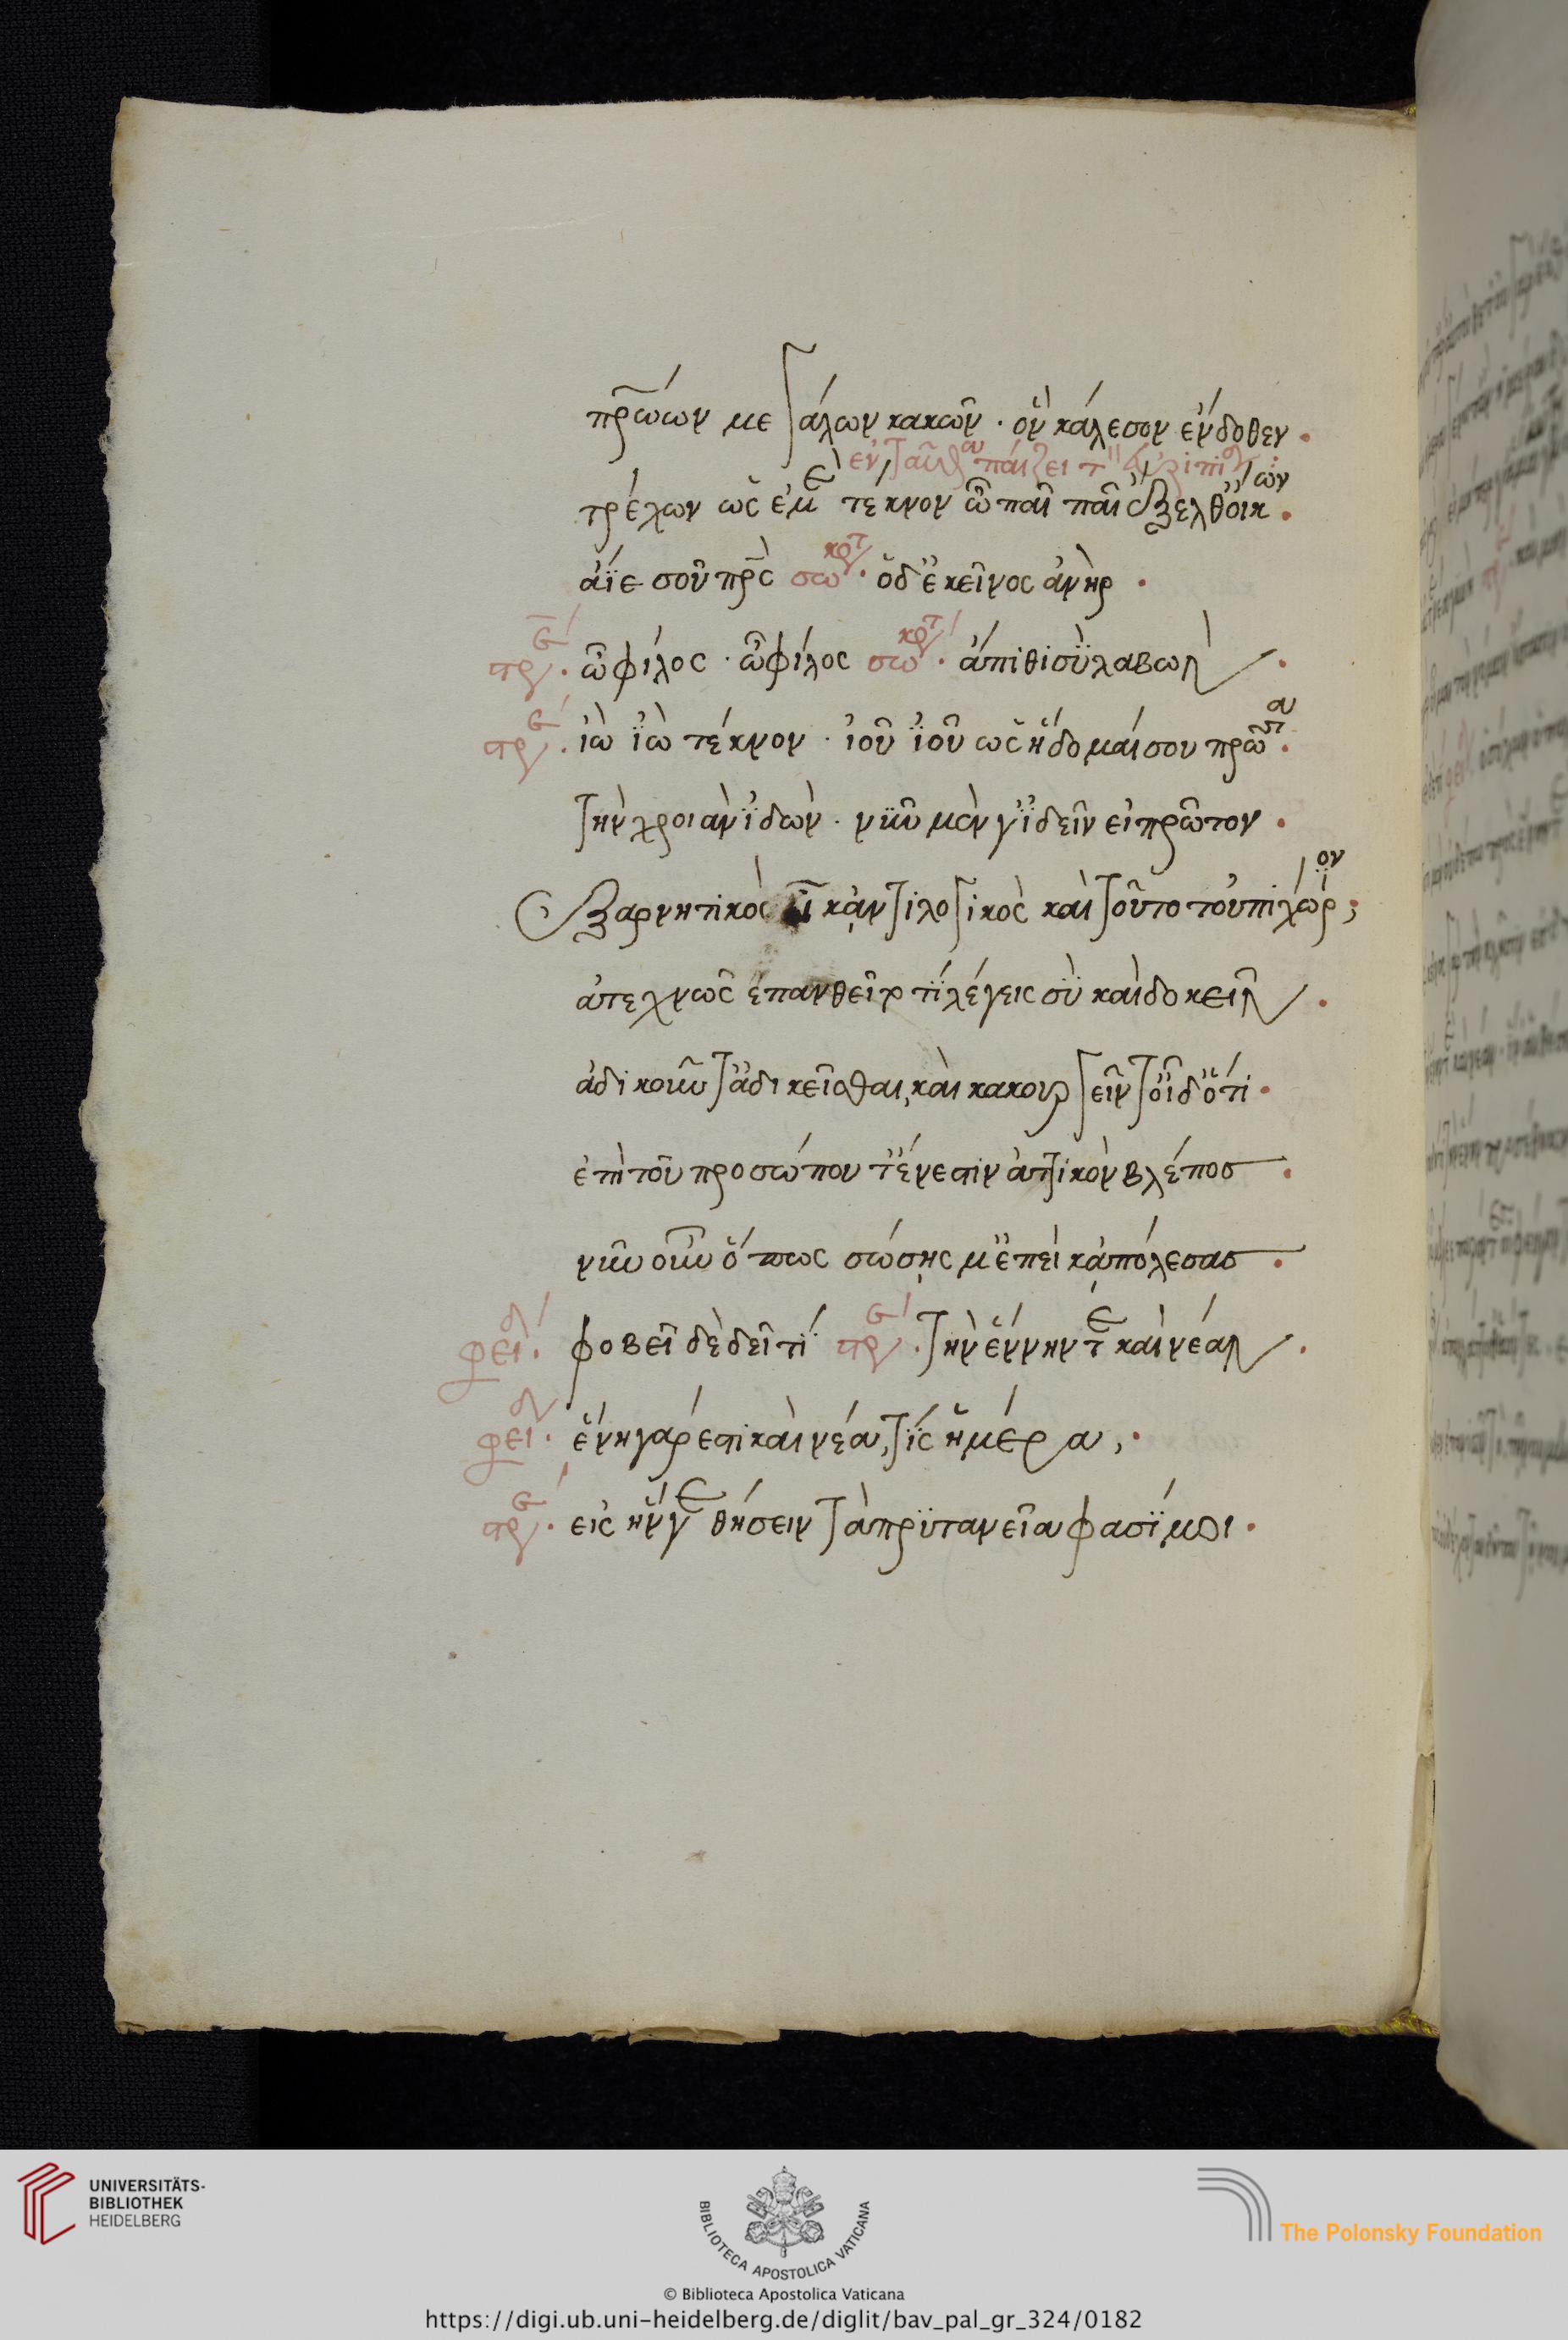 πρώων μεγάλων κακῶν · ὃν κάλεσον ἔνδοθεν ·
ἐνταῦθα παίζει τὰ εὐριπίδου :
τρέχων ὡς ἐμὲ τέκνον ὦ παῖ παῖ ἔξελθ' οἴκων ·
ἄϊε σοῦ πρς σωκρτ · ὅδ' ἐκεῖνος ἀνὴρ ·
πρς · ὦ φίλος · ὦ φίλος σωκρτ · ἄπιθι σὺ λαβὼν ·
πρς · ἰὼ ἰὼ τέκνον · ἰοῦ ἰοῦ ὡς ἥδομαί σου πρῶτα ·
τὴν χροιὰν ἰδών · νῦν μὲν γ' ἰδεῖν εἶ πρῶτον ·
ἐξαρνητικὸς κἀντιλογικὸς καὶ τοῦτο τοὐπιχώριον ;
ἀτεχνῶς ἐπανθεῖ τὸ τί λέγεις σὺ καὶ δοκεῖν ·
ἀδικοῦντ' ἀδικεῖσθαι, καὶ κακουργεῖν τ' οἶδ' ὅτι ·
ἐπὶ τοῦ προσώπου τ' ἔνεστιν ἀττικὸν βλέπος ·
νῦν οὖν ὅπως σώσῃς μ' ἐπεὶ κἀπόλεσας ·
φειδ · φοβεῖ δὲ δεῖ τί πρς · τὴν ἔννην τε καὶ νέαν ·
φειδ · ἔνη γάρ ἐστι καὶ νέα, τίς ἡμέρα, ·
πρς · εἰς ἥν γε θήσειν τὰ πρυτανεῖα φασί μοι ·
UNIVERSITÄTS-
BIBLIOTHEK
HEIDELBERG
BIBLIOTECA APOSTOLICA VATICANA
The Polonsky Foundation
© Biblioteca Apostolica Vaticana
https://digi.ub.uni-heidelberg.de/diglit/bav_pal_gr_324/0182